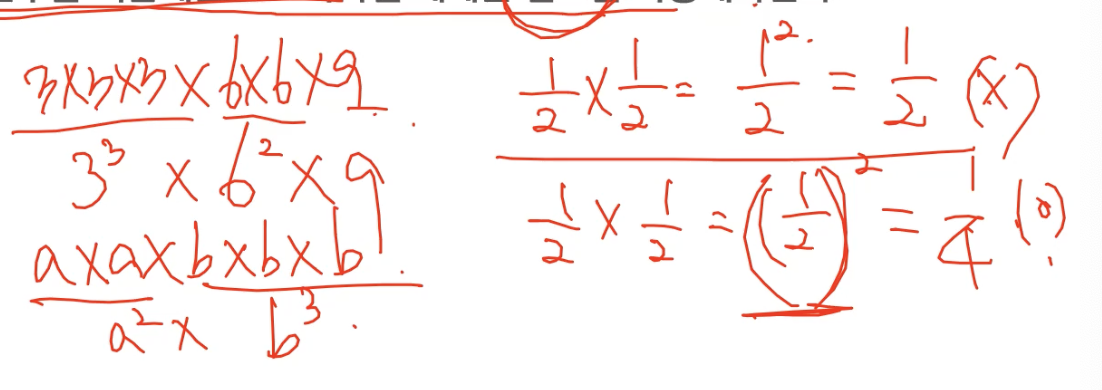 3×3×3×6×6×9
3³ × 6² × 9
a×a×b×b×b
a² × b³
1/2 × 1/2 = 1²/2 = 1/2 (×)
1/2 × 1/2 = (1/2)² = 1/4 (o)